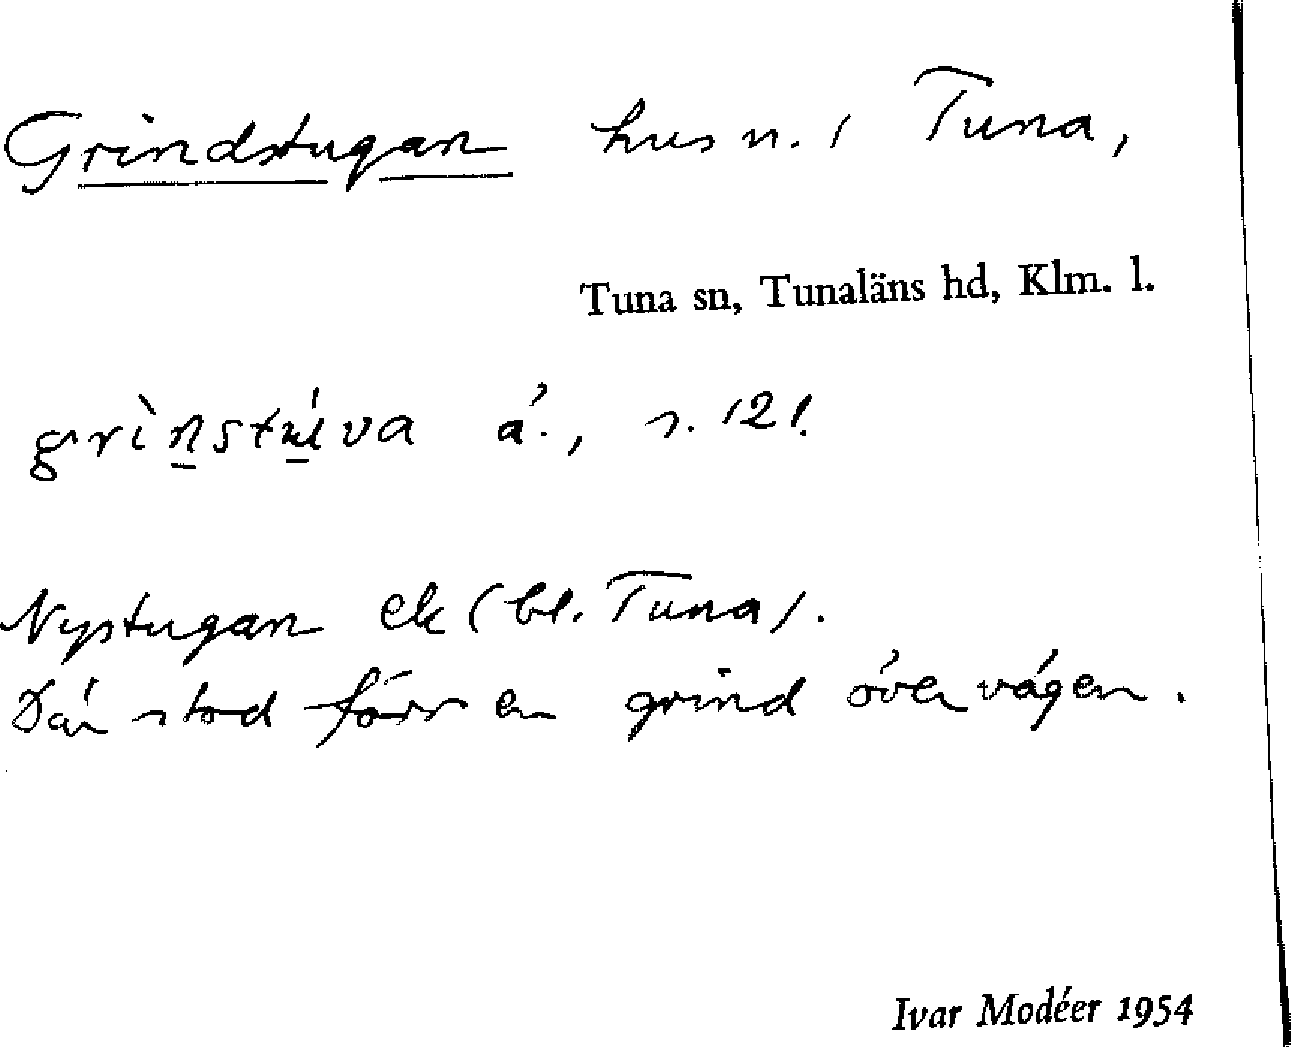 Grindstugan hus n. i Tuna,
Tuna sn, Tunaläns hd, Klm. l.
grìnstúva ä., s. 121.
Nystugan ek (bl. Tuna).
Där stod förr en grind över vägen.
Ivar Modéer 1954